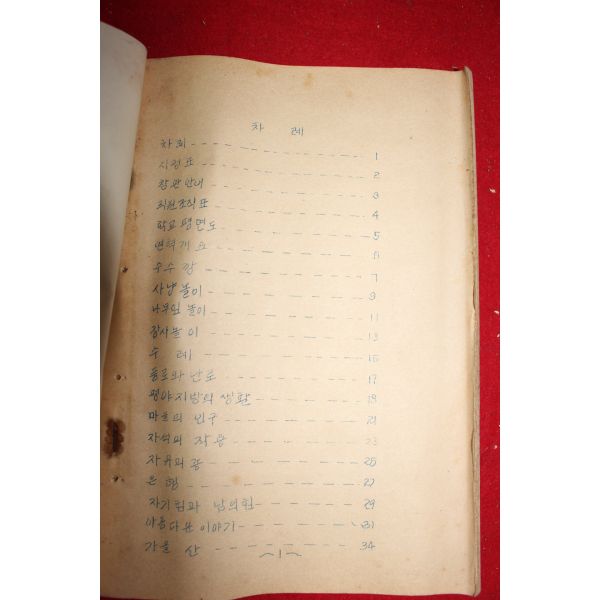 차 례
차례 1
시정표 2
참관안내 3
직원조직표 4
학교평면도 5
연혁개요 6
우수깡 7
사냥놀이 9
나뭇잎 놀이 11
장사놀이 13
수 레 15
풍로와 난로 17
평야지방의 생활 19
마을의 인구 21
자석의 작용 23
자유의 종 25
은행 27
자기힘과 남의힘 29
아름다운 이야기 31
가을 산 34
1